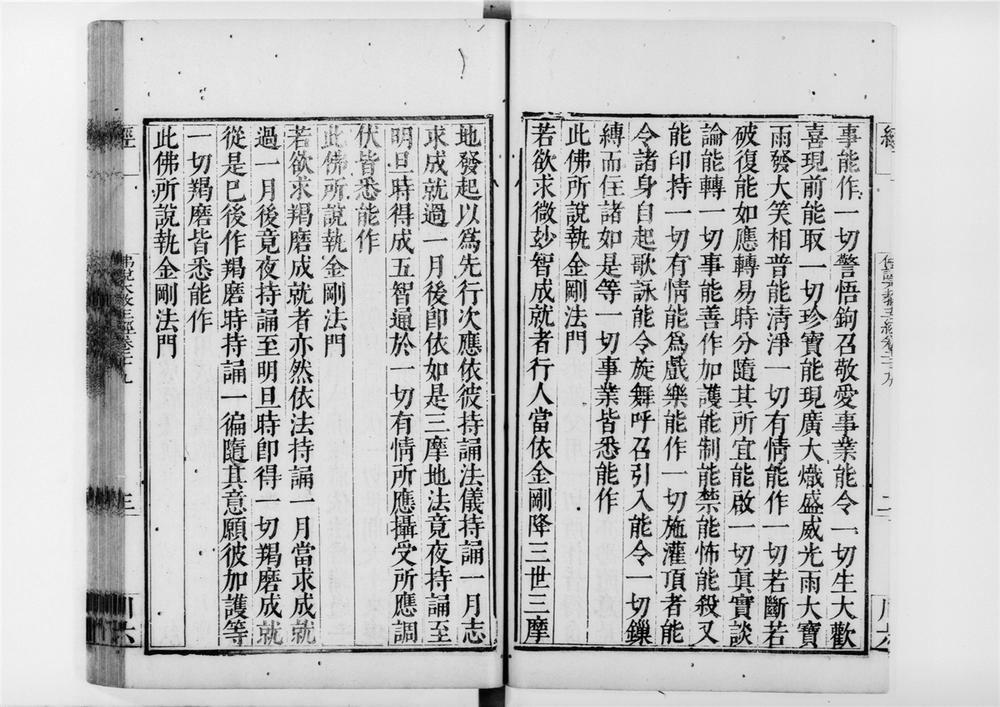 事能作一切警悟鉤召敬愛事業能令一切生大歡
喜現前能取一切珍寶能現廣大熾盛威光雨大寶
雨發大笑相普能清淨一切有情能作一切若斷若
破復能如應轉易時分隨其所宜能啟一切真實談
論能轉一切事能善作加護能制能禁能怖能殺又
能印持一切有情能為戲樂能作一切施灌頂者能
令諸身自起歌詠能令旋舞呼召引入能令一切鏁
縛而住諸如是等一切事業皆悉能作
此佛所說執金剛法門
若欲求微妙智成就者行人當依金剛降三世三摩
地發起以為先行次應依彼持誦法儀持誦一月志
求成就過一月後卽依如是三摩地法竟夜持誦至
明旦時得成五智通於一切有情所應攝受所應調
伏皆悉能作
此佛所說執金剛法門
若欲求羯磨成就者亦然依法持誦一月當求成就
過一月後竟夜持誦至明旦時卽得一切羯磨成就
從是已後作羯磨時持誦一徧隨其意願彼加護等
一切羯磨皆悉能作
此佛所說執金剛法門
經
三
川六